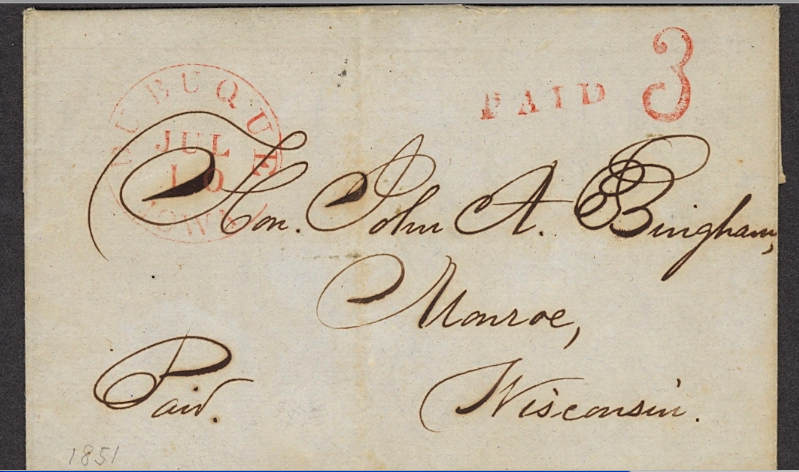 DUBUQUE
JUL
10
IOWA
PAID 3
Hon. John A. Bingham,
Monroe,
Wisconsin.
Paid.
1851